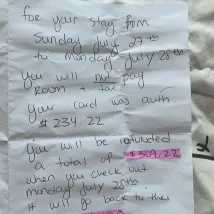 for your stay from
Sunday July 27th
to monday July 28th
you will not pay
room + tax
your card was auth.
$ 234.22
you will be refunded
a total of $304.22
when you check out
monday July 28th.
it will go back to the